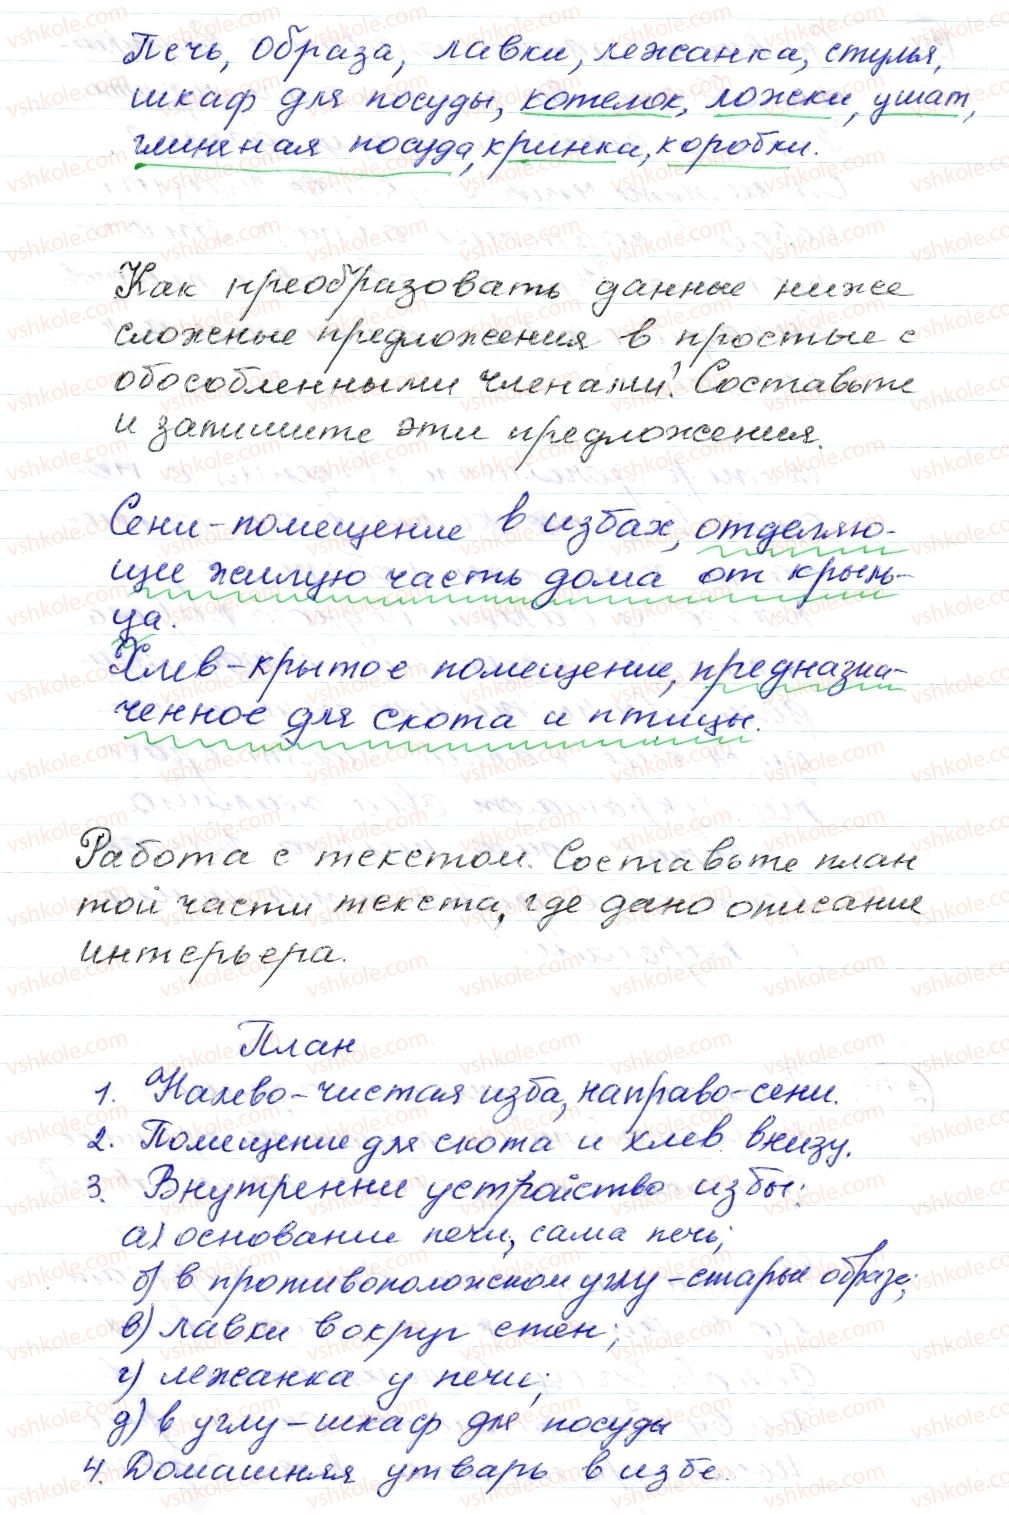 Печь, образа, лавки, лежанка, стулья,
шкаф для посуды, котелок, ложки, ушат,
глиняная посуда, кринка, коробки.
Как преобразовать данные ниже
сложные предложения в простые с
обособленными членами? Составьте
и запишите эти предложения.
Сени - помещение в избах, отделяю-
щее жилую часть дома от крыль-
ца.
Хлев - крытое помещение, предназна-
ченное для скота и птицы.
Работа с текстом. Составьте план
той части текста, где дано описание
интерьера.
План
1. Налево - чистая изба, направо - сени.
2. Помещение для скота и хлев внизу.
3. Внутренне устройство избы:
а) основание печи, сама печь;
б) в противоположном углу - старые образа;
в) лавки вокруг стен;
г) лежанка у печи;
д) в углу - шкаф для посуды
4. Домашняя утварь в избе.